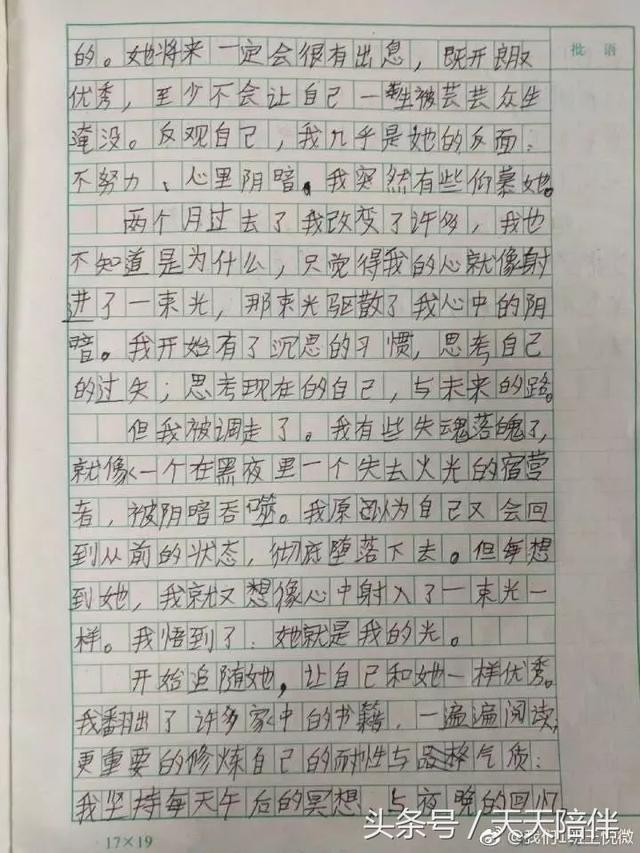 批 语
的。她将来一定会很有出息，既开朗又
优秀，至少不会让自己一生被芸芸众生
淹没。反观自己，我几乎是她的反面：
不努力、心里阴暗。我突然有些仰慕她。
两个月过去了我改变了许多，我也
不知道是为什么，只觉得我的心就像射
进了一束光，那束光驱散了我心中的阴
暗。我开始有了沉思的习惯，思考自己
的过失；思考现在的自己，与未来的路。
但我被调走了。我有些失魂落魄了，
就像一个在黑夜里一个失去火光的宿营
者，被阴暗吞噬。我原以为自己又会回
到从前的状态，彻底堕落下去。但每想
到她，我就又想像心中射入了一束光一
样。我悟到了：她就是我的光。
开始追随她，让自己和她一样优秀。
我翻出了许多家中的书籍，一遍遍阅读，
更重要的修炼自己的耐性与品格气质：
我坚持每天午后的冥想，与夜晚的回忆
17×19
头条号/天天陪伴
@我们1班王悦微